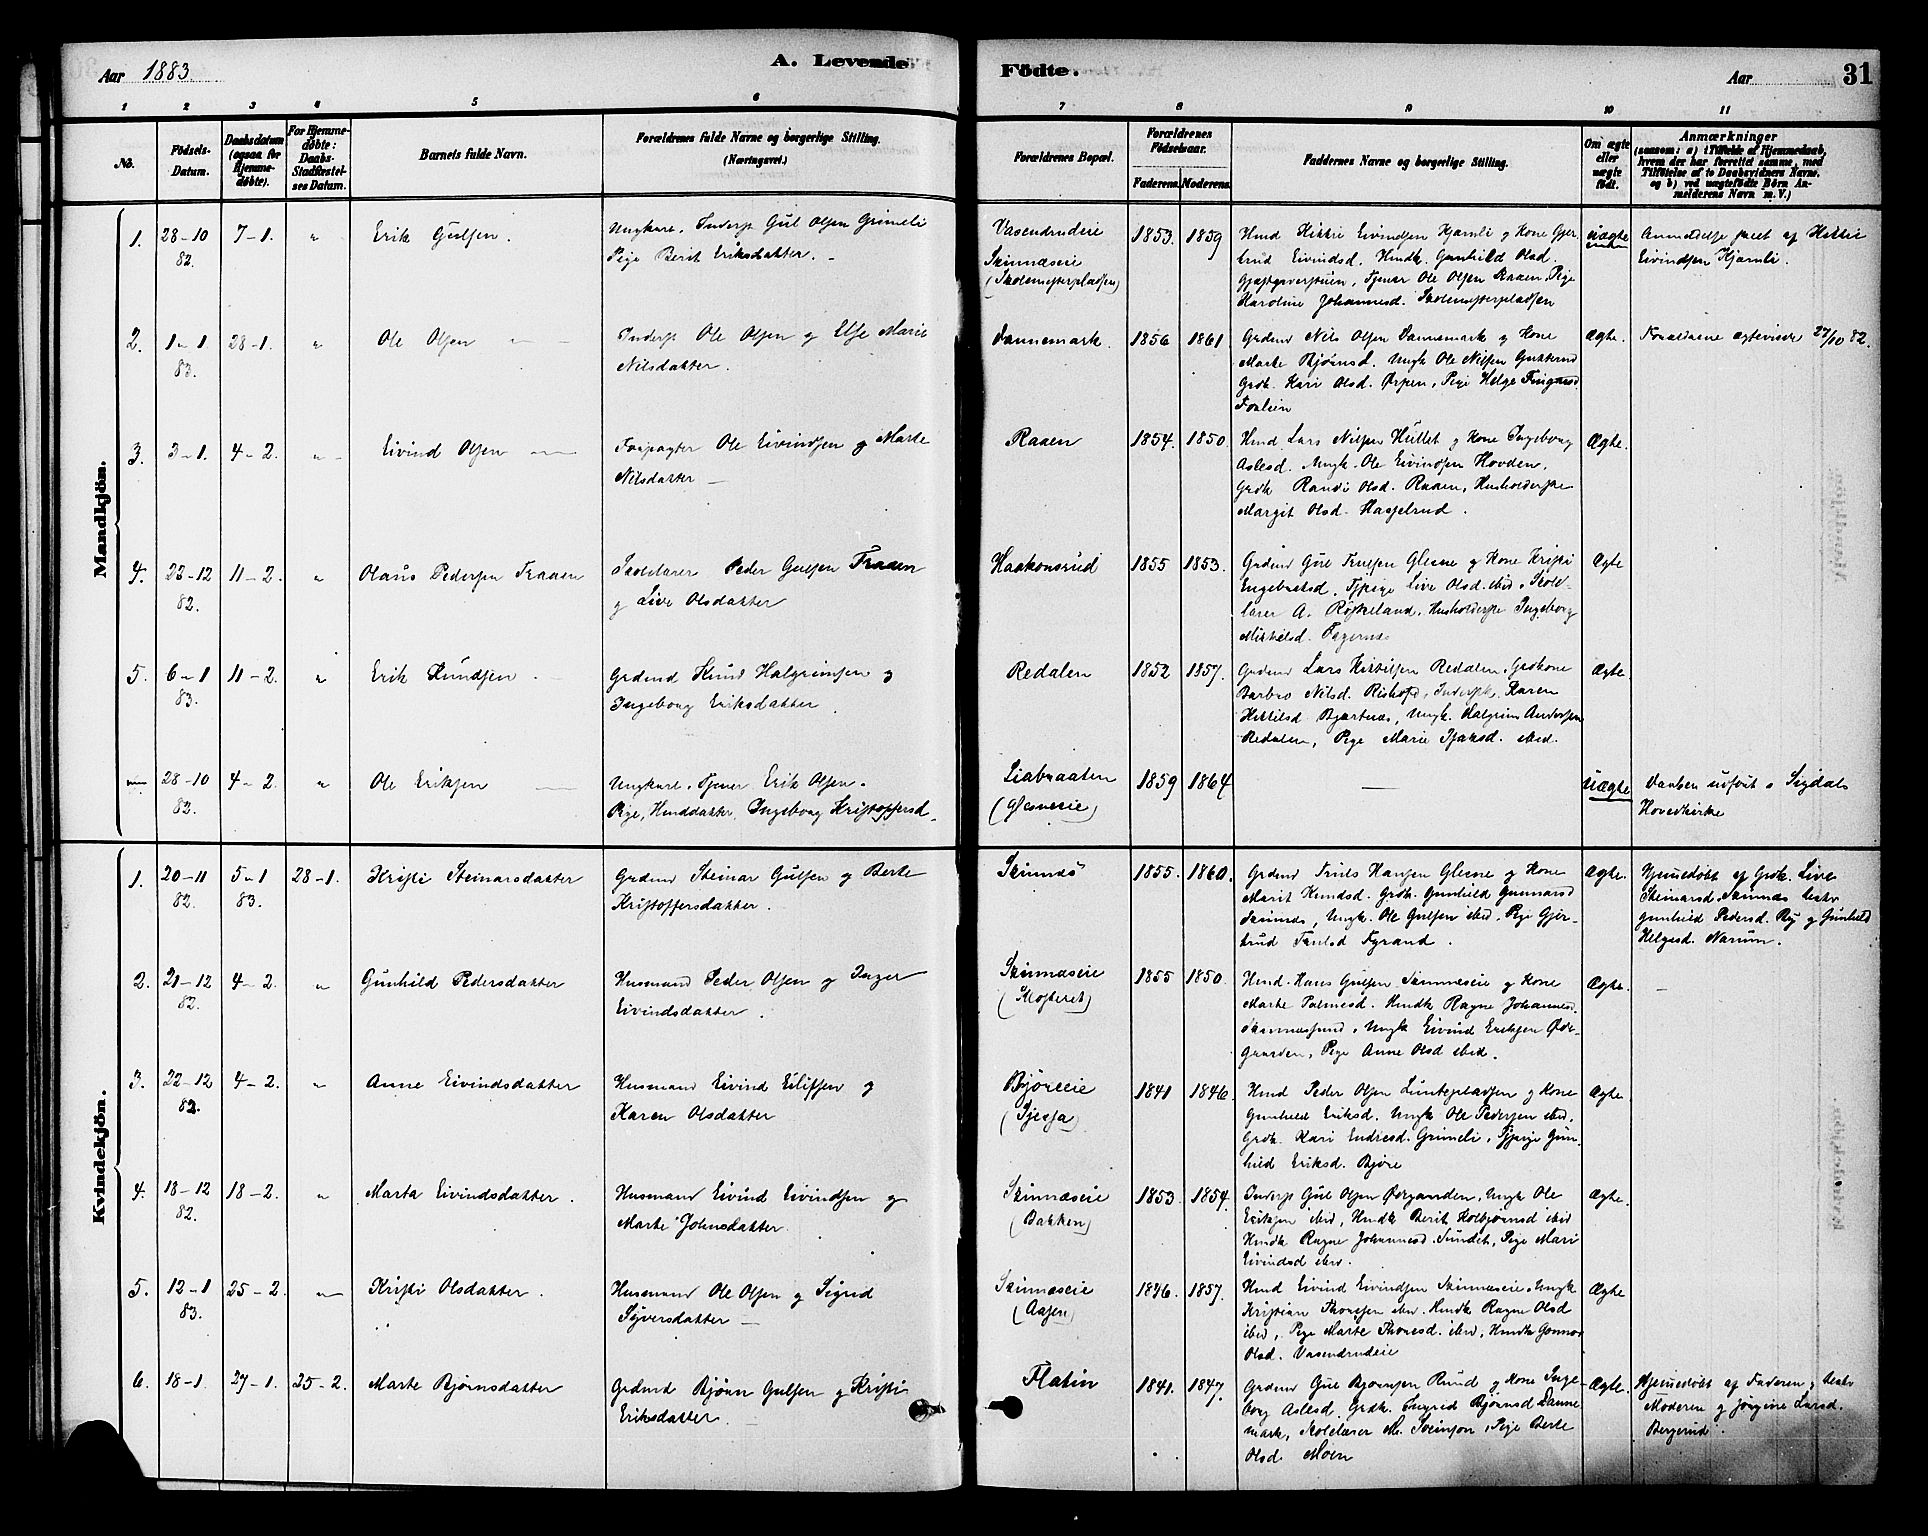 Aar 1883.
A. Levende
Födte.
Aar
31
1 2 3 4 5 6 7 8 9 10 11
No.
Födsels-
Datum.
Daabsdatum
(ogsaa for
Hjemme-
døbte).
For Hjemme-
døbte:
Daabs-
Stadfæstel-
ses Datum.
Barnets fulde Navn.
Forældrenes fulde Navne og borgerlige Stilling.
(Næringsvei.)
Forældrenes Bopæl.
Forældrenes
Födselsaar.
Faderens. Moderens.
Faddernes Navne og borgerlige Stilling.
Om ægte
eller
uægte
født.
Anmærkninger
(saasom: a) i Tilfælde af Hjemmedaab,
hvem der har forrettet samme, med
Tilföielse af to Daabsvidners Navne.
og b) ved uægtefödte Börn An-
melderens Navn m. V.)
Mandkjön.
1. 28-10 7-1. " Erik Gulsen. Ungkarl, Inderst Gul Olsen Grimeli
82. Pige Berit Eriksdatter.
Vasendrudeie 1853. 1859
Skinnæseie
(Skolemesterpladsen)
Hmd Kittil Eivindsen Hjamli g Kone Gjer-
trud Eivindsd. Hmdk. Gunhild Olsd.
Tjener Ole Olsen Raaen. Pige
Karoline Johannesd. Skolemesterpladsen
uægte
Anmeldelse skeet af Kittil
Eivindsen Hjamli.
2. 1-1 28-1. " Ole Olsen Inderst Ole Olsen g Else Marie
83. Nilsdatter.
Dannemark. 1856 1861
Grdmd Nils Olsen Dannemark g Kone
Marte Bjørnsd. Ungk. Ole Nilsen
Grdk. Kari Olsd. Ørpen, Pige Helge
Ægte.
Forældrene ægteviede 27/10 82.
3. 3-1. 4-2. " Eivind Olsen Forpagter Ole Eivindsen g Marte
Nilsdatter
Raaen 1854. 1850.
Hmd Lars Nilsen g Kone Ingeborg
Aslesd. Ungk. Ole Eivindsen Hovden.
Grdk Randi Olsd. Raaen, Husholderske
Margit Olsd. Hasselrud.
Ægte.
4. 22-12 11-2. " Olaus Pedersen Fraaen Skolelærer Peder Gulsen Fraaen
82. g Live Olsdatter
Haakonsrud 1855 1853.
Grdmd Gul Trulsen Glesne g Kone Kristi
Engebretsd. Tjpige Live Olsd. ibid. Skole-
lærer A. Røskeland, Husholderske Ingeborg
Mikkelsd. Fagernæs
Ægte
5. 6-1 11-2. " Erik Knudsen Grdmd Knud Halgrimsen g
83. Ingeborg Eriksdatter
Redalen 1852 1857.
Grdmd Lars Kittilsen Redalen, Grdkone
Barbro Nilsd. Karen
Kittilsd. Ungk. Halgrim Andersen
Redalen, Pige Marie ibid.
Ægte.
28-10 4-2. " Ole Eriksen Ungkarl, Tjener Erik Olsen.
82. Pige, Husmdatter, Ingeborg Kristoffersd.
Liabraaten 1859 1864
(Glesneeie)
uægte
Daaben udført i Sigdals
Hovedkirke
Kvindekjön.
1. 20-11 5-1 28-1. Kristi Steinarsdatter Grdmd Steinar Gulsen g Berte
82. 83. Kristoffersdatter.
Skinnæs 1855. 1860.
Grdmd Truls Hansen Glesne g Kone
Marit Knudsd. Grdk. Gunhild Gunnarsd
Skinnæs, Ungk. Ole Gulsen ibid Pige Gjer-
trud Trulsd Fyrand.
Ægte.
Hjemmedøbt af Grdk. Live
Steinarsd. Skinnæs testv
Gunhild Pedersd. g Gunhild
Helgesd. Narum.
2. 21-12 4-2. " Gunhild Pedersdatter Husmand Peder Olsen g Inger
82. Eivindsdatter.
Skinnæseie 1855 1850.
(Klosteret)
Hmd. Hans Gulsen Skinnæseie g Kone
Marte Palmesd. Hmdk Ragne Johannesd.
Ungk Eivind Eriksen Øde-
gaarden, Pige Anne Olsd ibid.
Ægte.
3. 22-12 4-2. " Anne Eivindsdatter Husmand Eivind Eilifsen g
82. Karen Olsdatter
Bjøreeie 1841 1846.
Hmd Peder Olsen Luntepladsen g Kone
Gunhild Eriksd. Ungk Ole Pedersen ibid,
Grdk. Kari Endresd. Grimeli, Tjpige Gun-
hild Eriksd. Bjøre
Ægte.
4. 18-12 18-2. " Marta Eivindsdatter. Husmand Eivind Eivindsen g
82. Marte Johnsdatter.
Skinnæseie 1853. 1854.
(Bakken)
Inderst Gul Olsen Ødegaarden, Ungk Ole
Eriksen ibid, Hmdk Berit Kolbjørnsd ibid
Hmdk Ragne Johannesd. Sundet, Pige Mari
Eivindsd ibid.
Ægte.
5. 12-1 25-2. Kristi Olsdatter. Husmand Ole Olsen g Sigrid
83. Syversdatter
Skinnæseie 1846. 1857.
(Aasen)
Hmd Eivind Eivindsen Skinnæseie. Ungk
Kristian Thoresen ibid. Hmdk Ragne Olsd
ibid, Pige Marte Thoresd. ibid, Hmdk Gunnor
Olsd. Vasendrudeie
Ægte
6. 18-1. 27-1. 25-2. Marte Bjørnsdatter Grdmd Bjørn Gulsen g Kristi
Eriksdatter.
Flatin 1841. 1847.
Grdmd Gul Bjørnsen Rund g Kone Inge-
borg Aslesd. Grdk. Ingrid Bjørnsd Danne-
mark, Skolelærer M. Sveinson, Pige Berte
Olsd. Moen
Ægte.
Hjemmedøbt af Faderen, testv
Moderen g Jørgine Larsd.
Bergerud.